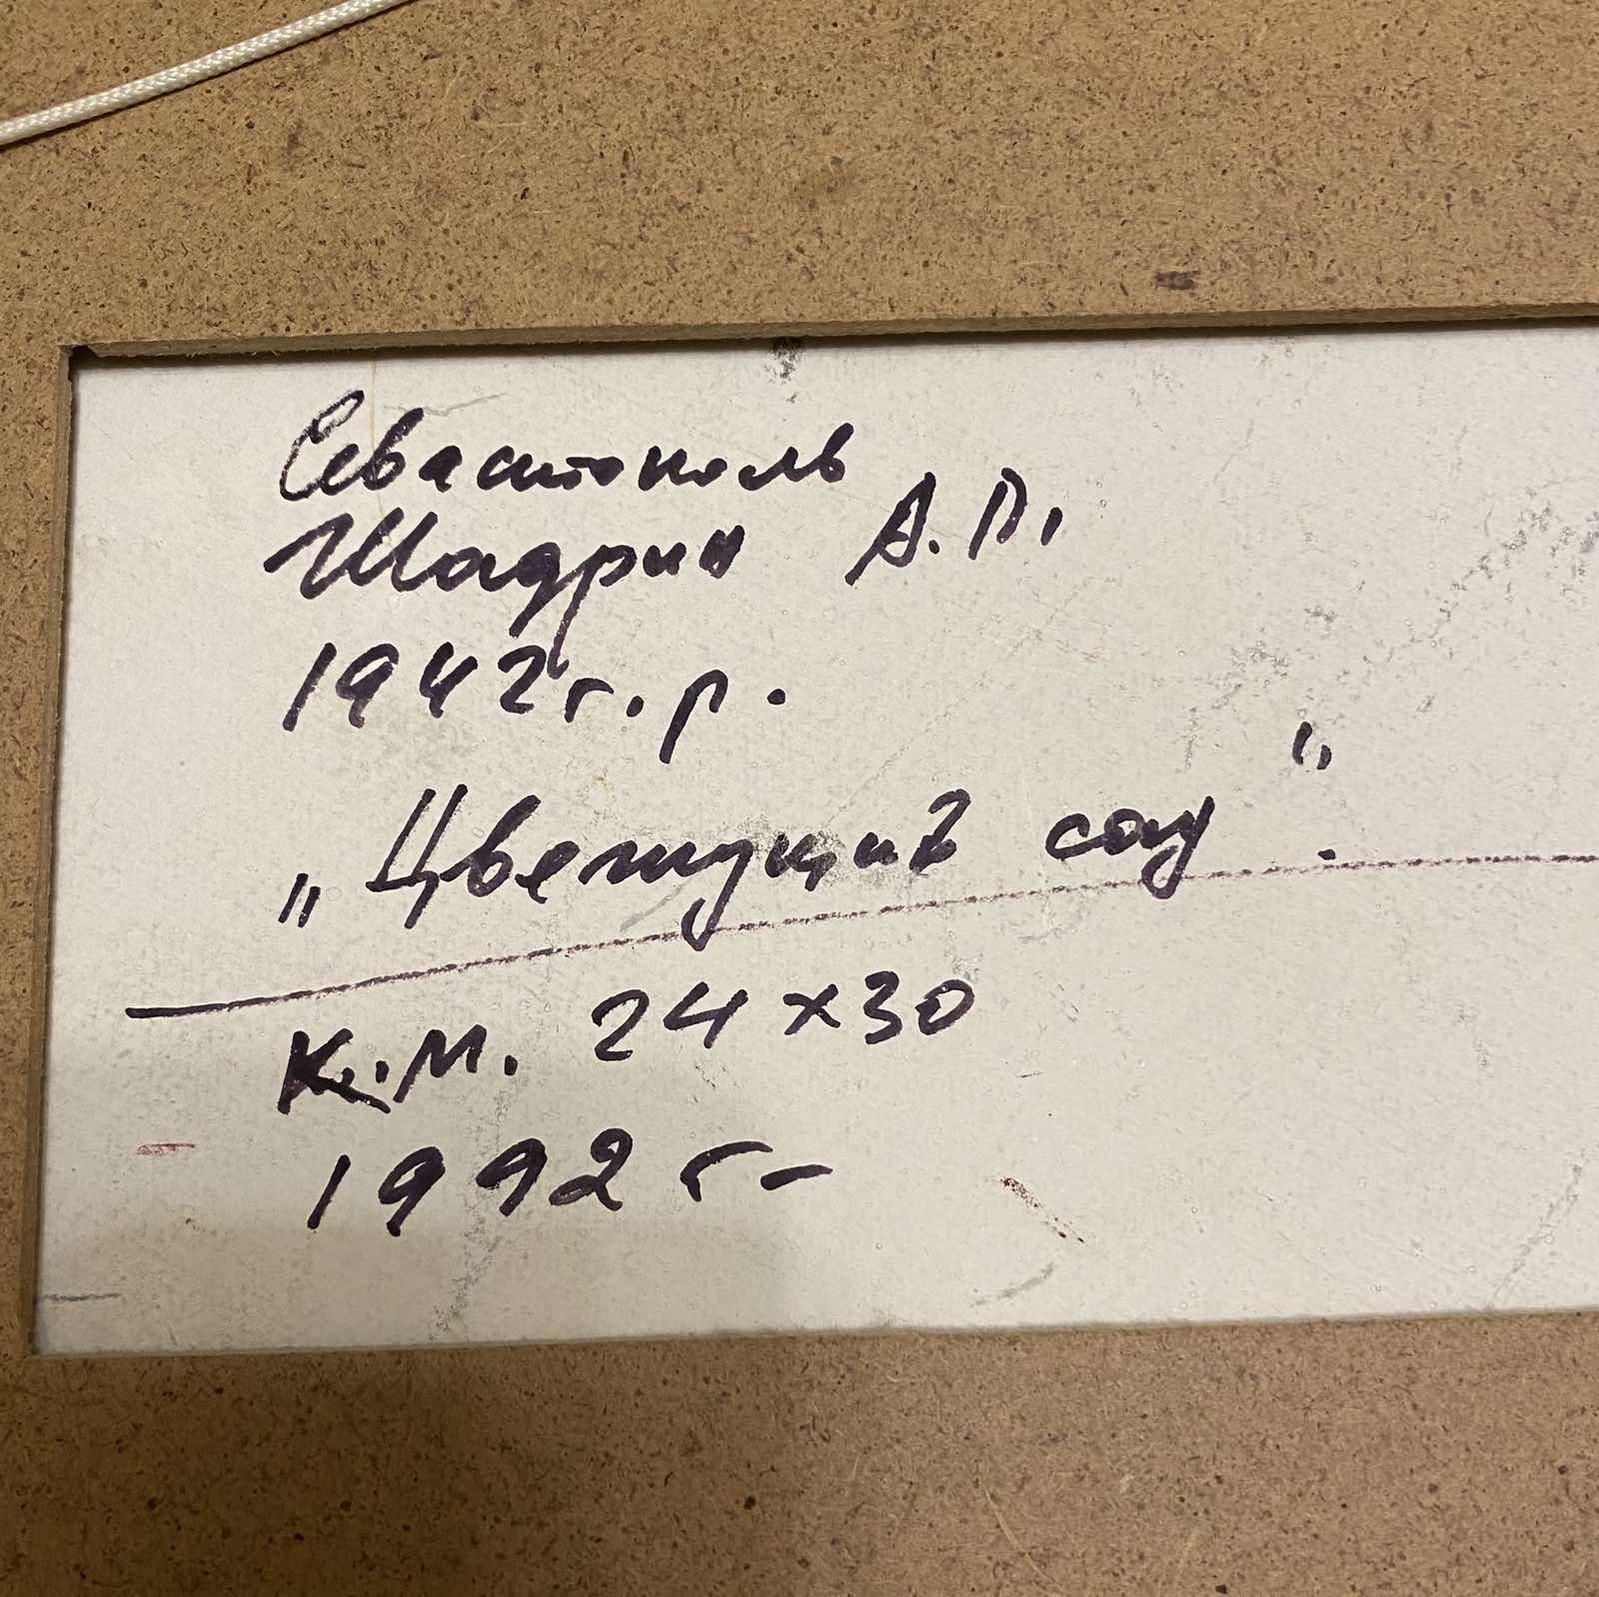 Севастополь
Шадрин А.П.
1942 г.р.
„Цветущий сад“.
К.М. 24х30
1992 г-